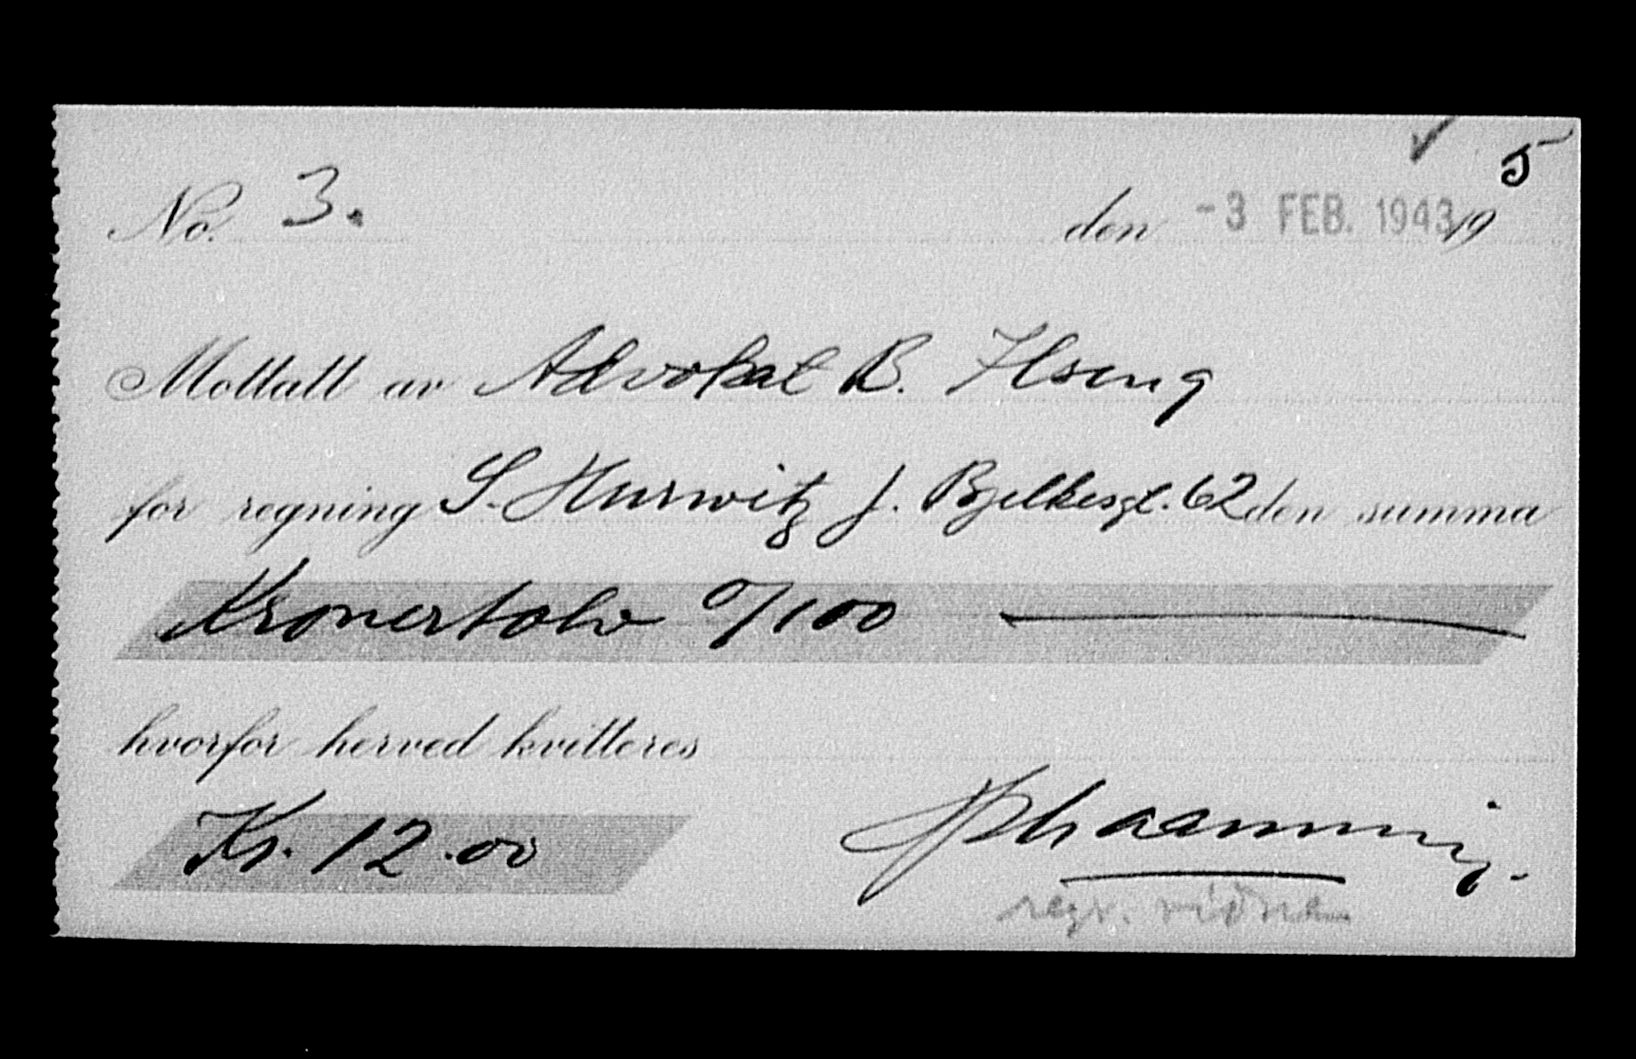 ✓ 5
No. 3. den -3 FEB. 1943 19
Mottatt av Advokat B. Ilseng
for regning S. Hurwitz J. Bjelkesgt. 62 den summa
Kronertolv 0/100
hvorfor herved kvitteres
Kr. 12.00
regr. vidne